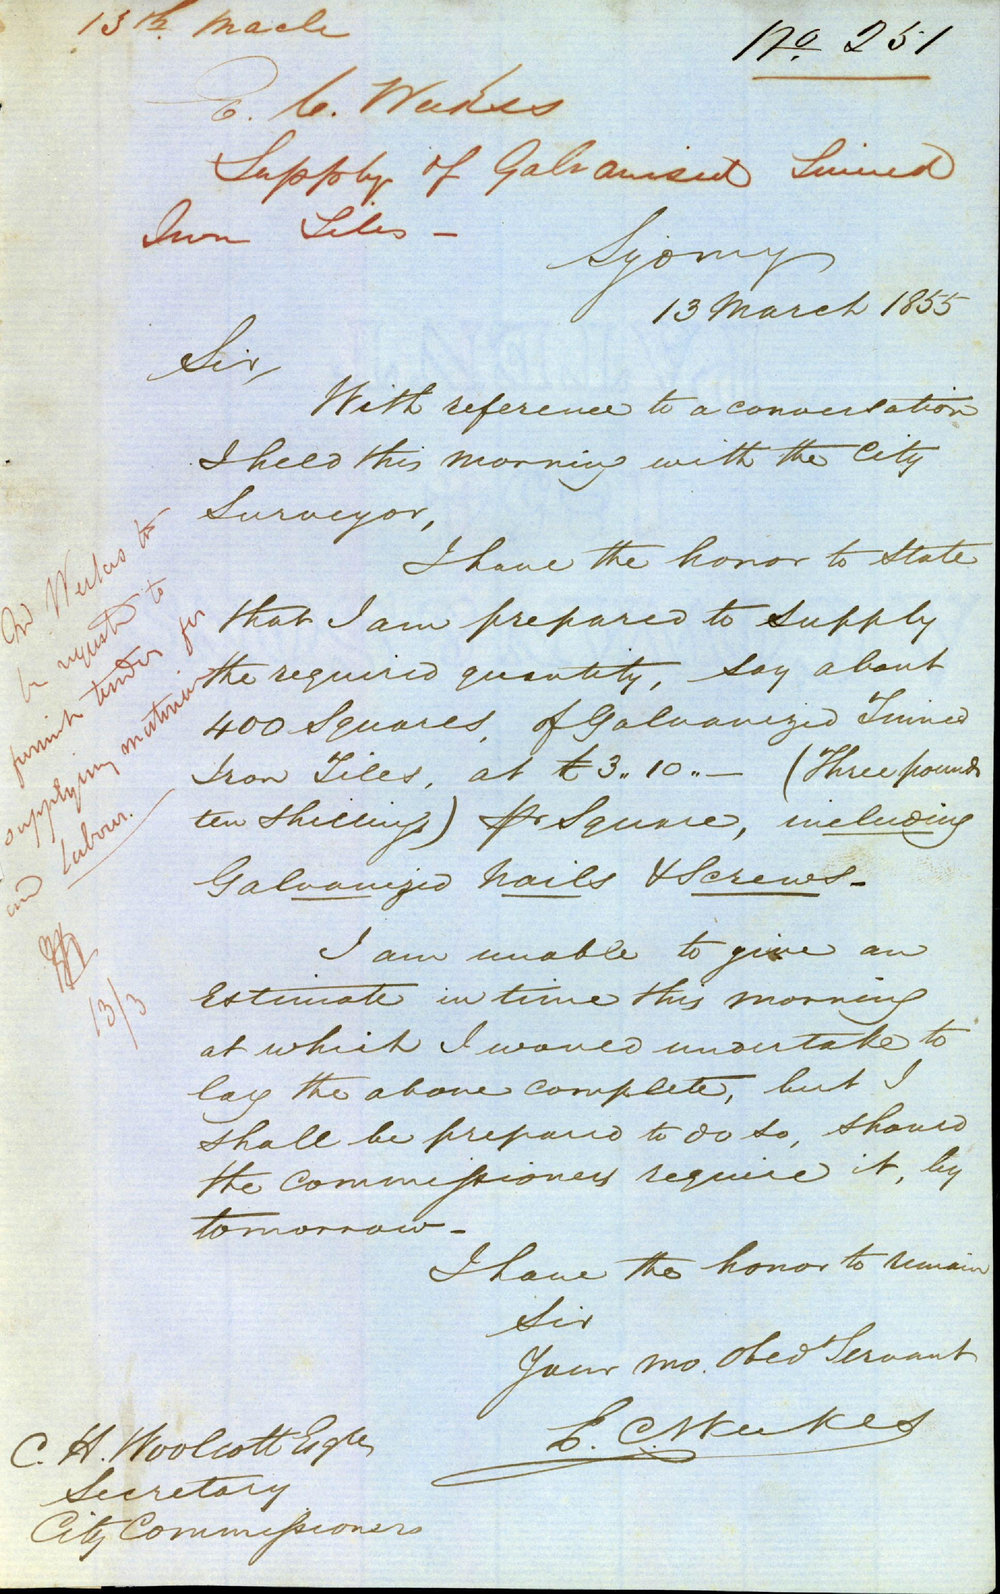 13th March
No 251
E. C. Weekes
Supply of Galvanised Tinned
Iron Tiles -
Sydney
13 March 1855
Sir,
With reference to a conversation
I held this morning with the City
Surveyor,
I have the honor to state
that I am prepared to supply
the required quantity, say about
400 Squares, of Galvanized Tinned
Iron Tiles, at £3.. 10.. — (Three pounds
ten shillings) pr Square, including
Galvanized Nails & Screws -
I am unable to give an
Estimate in time this morning
at which I would undertake to
lay the above complete, but I
shall be prepared to do so, should
the Commissioners require it, by
tomorrow -
I have the honor to remain
Sir
Your mo. Obed Servant
E. C. Weekes
C. H. Woolcott Esqre
Secretary
City Commissioners
Mr Weekes to
be requested to
furnish tender for
supplying material
and labour.
13/3